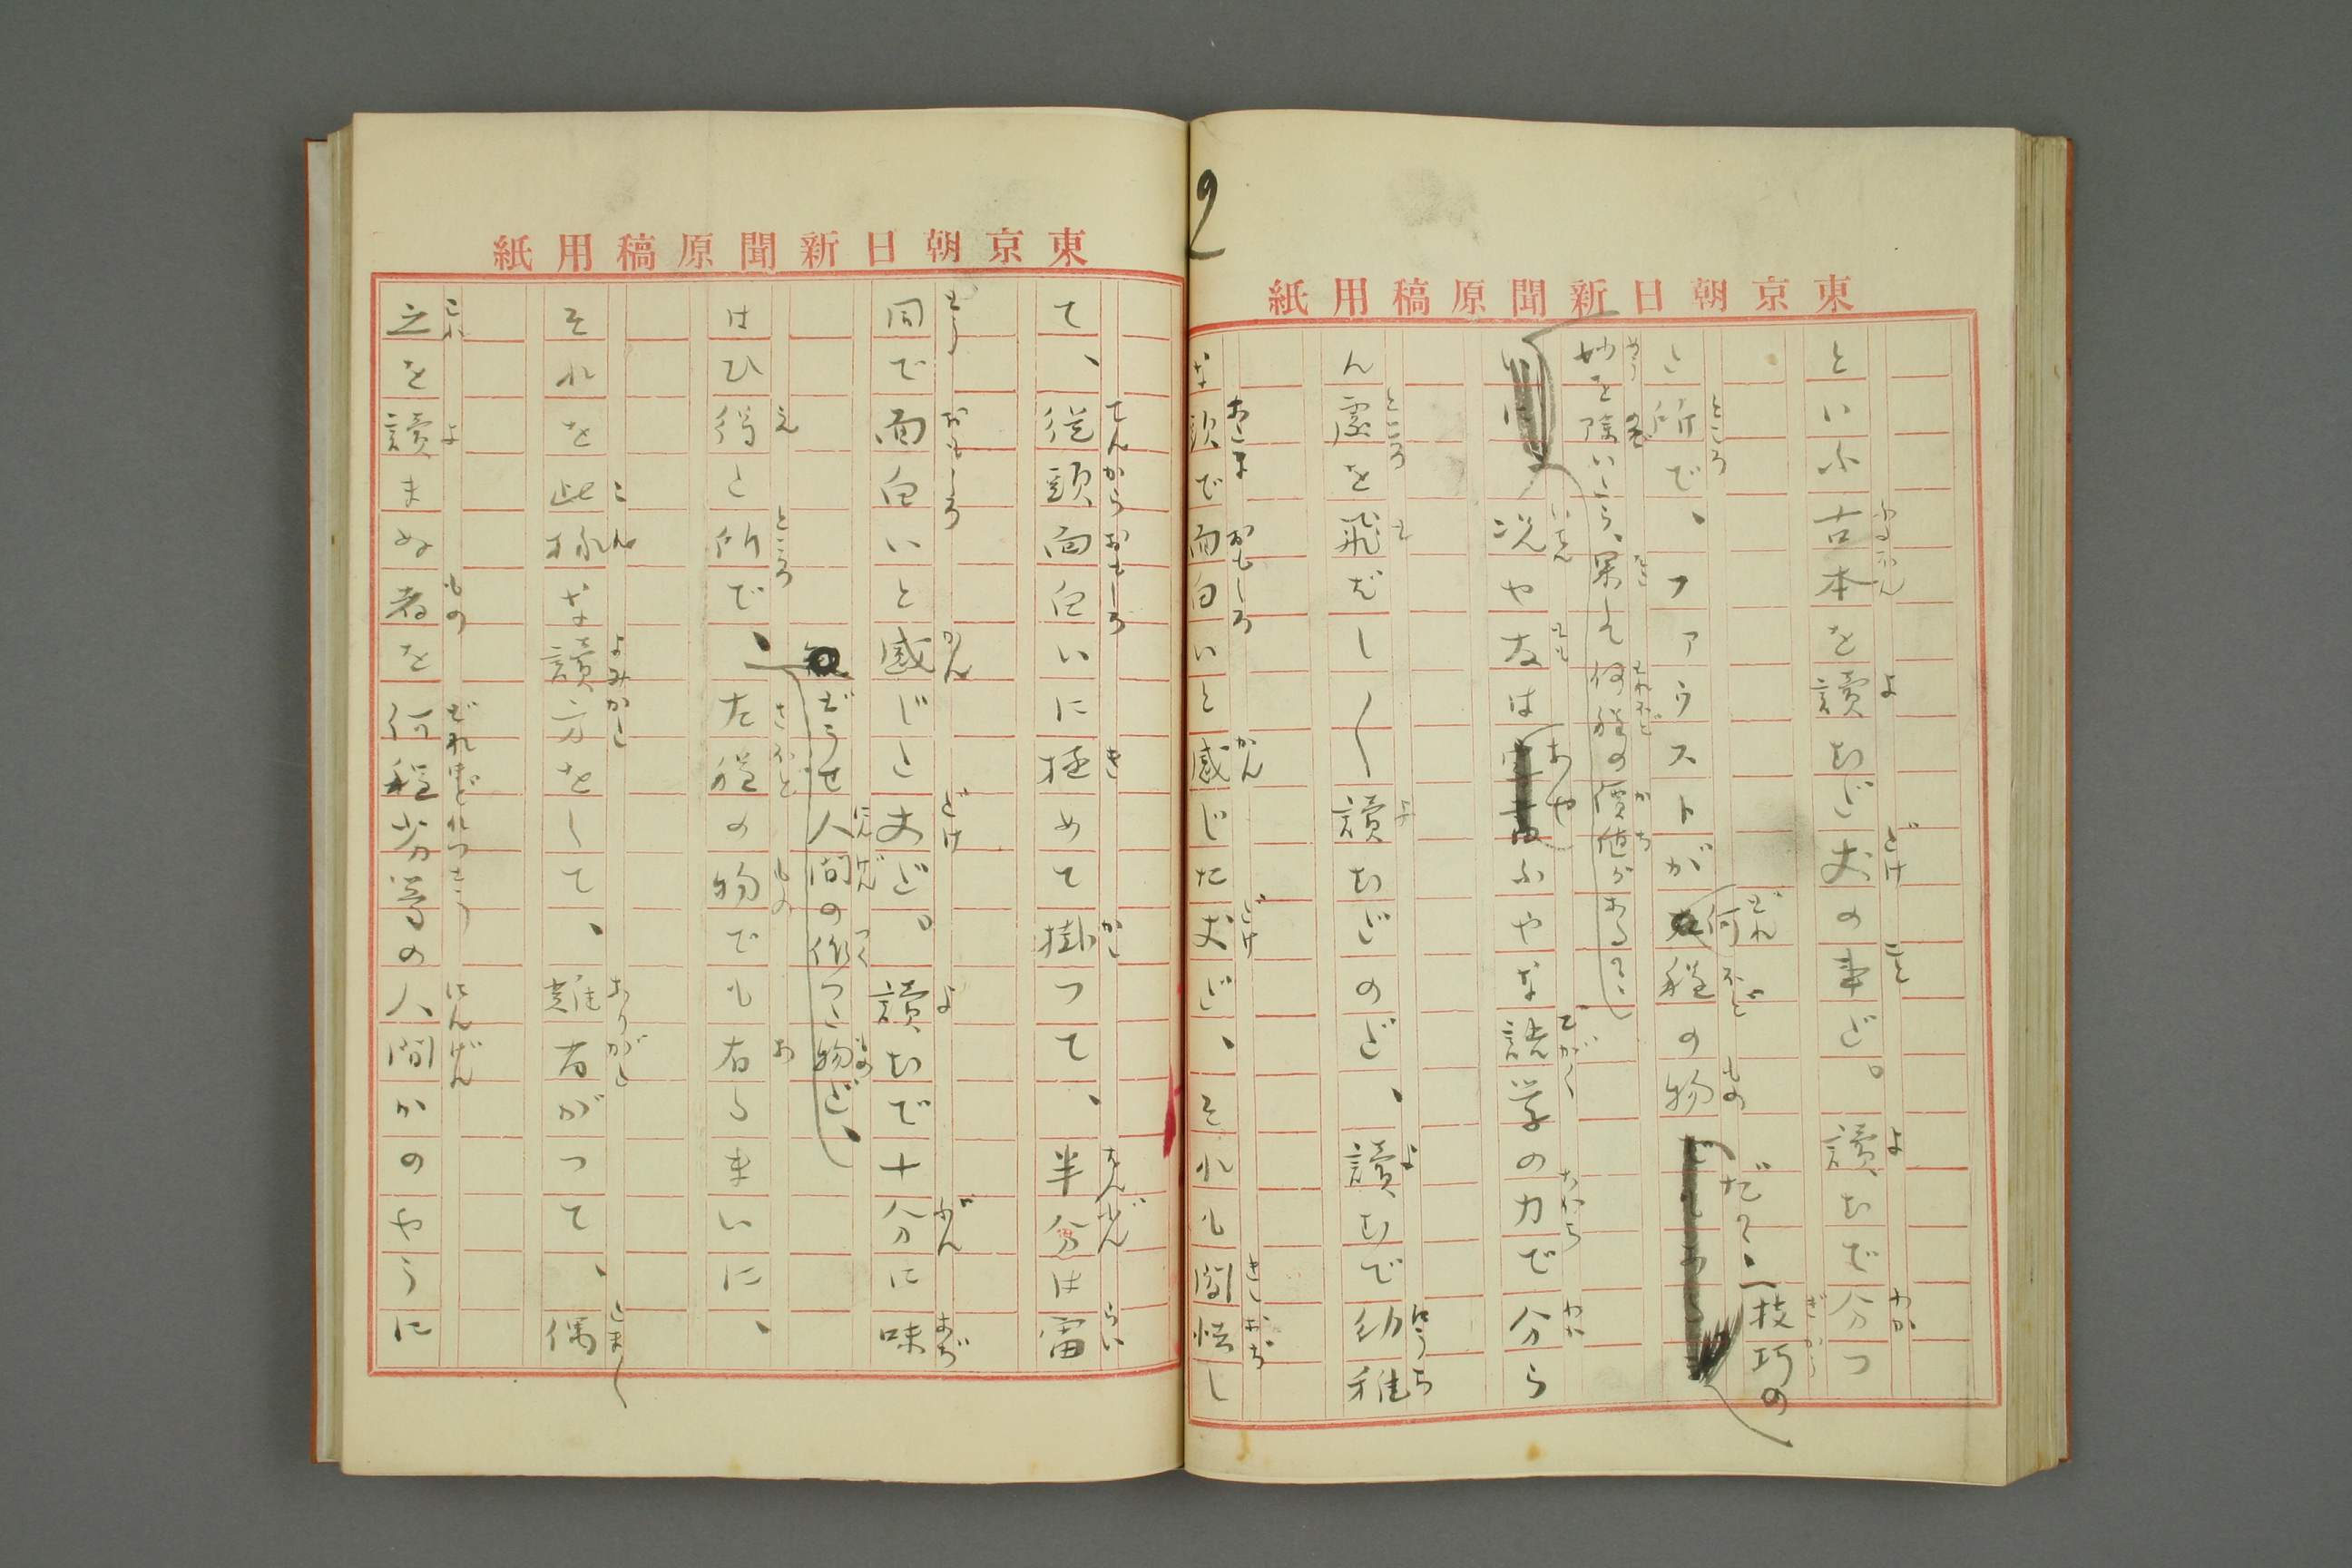 東京朝日新聞原稿用紙
といふ古本を讀むだ丈の事だ。讀むで分つ
た所で、ファウストが何程の物だ？技巧の
妙を除いたら、果して何程の價値がある？
況や友は
あやふやな語学の力で分ら
ん處を飛ばし〳〵讀むだのだ、讀むで幼稚
な頭で面白いと感じた丈だ、それも聞怯し
2
東京朝日新聞原稿用紙
て、從頭面白いに極めて掛つて、半分は雷
同で面白いと感じた丈だ。讀むで十分に味
はひ得た所で、どうせ人間の作つた物だ、
左程の物でも有らまいに、
それを此樣な讀方をして、難有がつて、偶
之を讀まぬ者を何程劣等の人間かのやうに